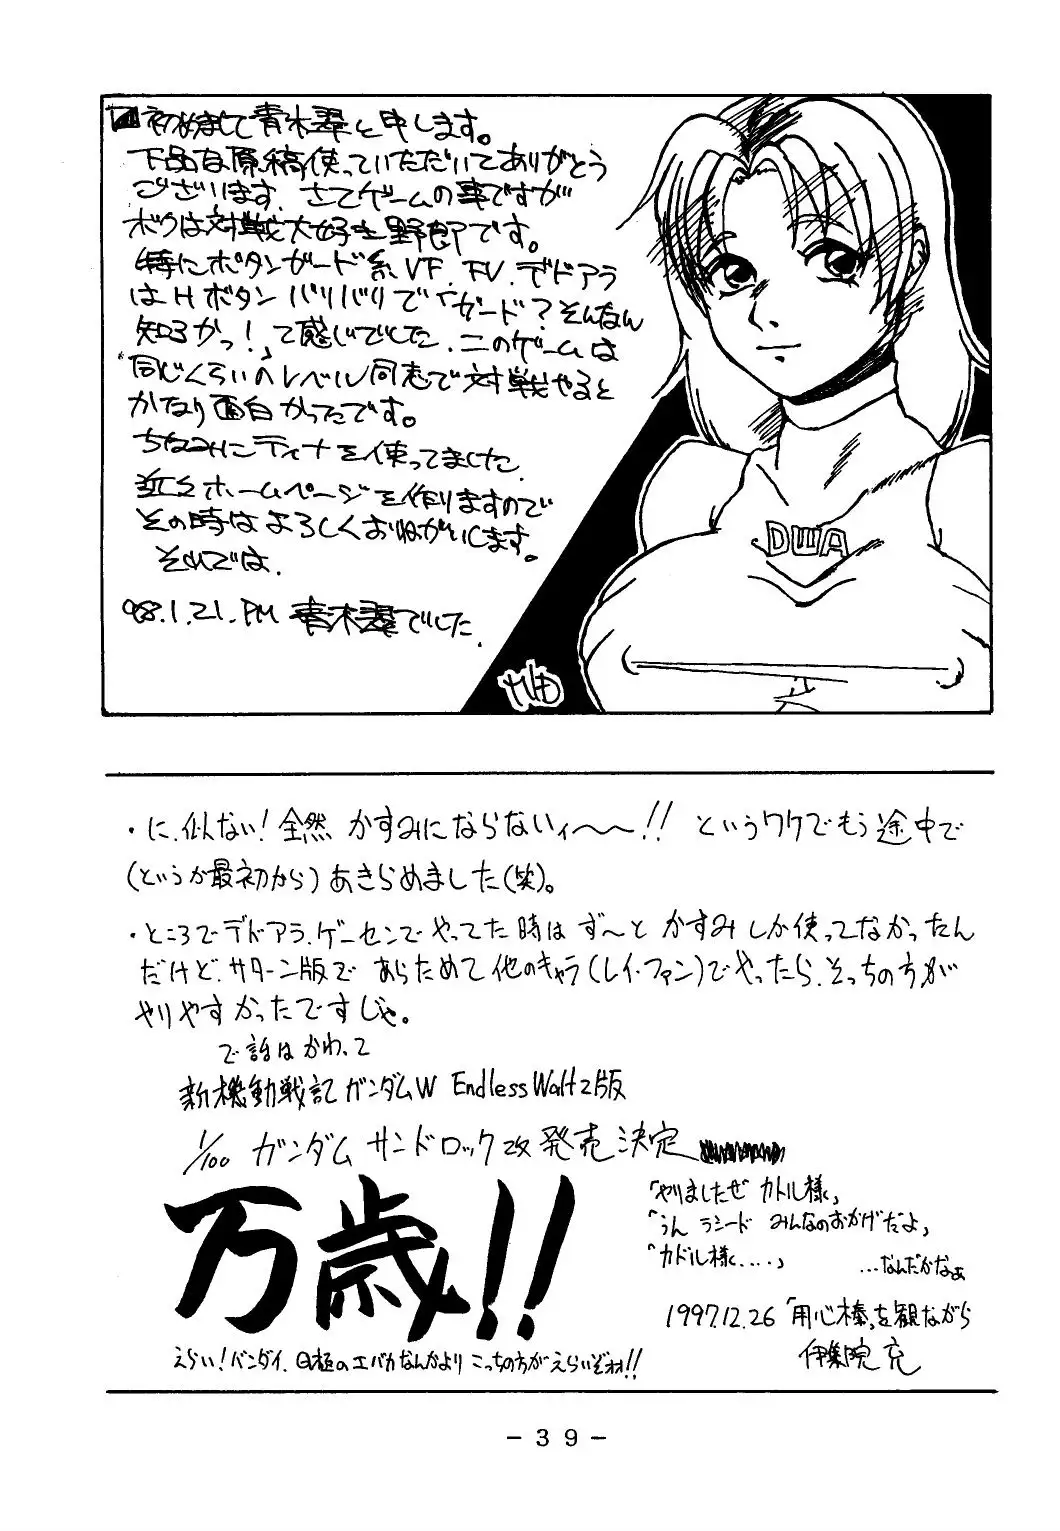 初めまして青木翠と申します。
下品な原稿使っていただいてありがとう
ございます。さてゲームの事ですが
ボクは対戦大好き野郎です。
特にボタンガード系VF.FV.デドアラ
はHボタンバリバリで「ガード?そんなん
知るかっ!」て感じでした.このゲームは
同じくらいのレベル同志で対戦やると
かなり面白かったです。
ちなみにティナを使ってました.
近々ホームページを作りますので
その時はよろしくおねがいします。
それでは.
'98.1.21.PM 青木翠でした.
DWA
・に、似ない!全然かすみにならないィ〜〜!! というワケでもう途中で
(というか最初から)あきらめました(笑)。
・ところでデドアラ、ゲーセンでやってた時はず〜とかすみしか使ってなかったん
だけど、サターン版であらためて他のキャラ(レイ・ファン)でやったら、そっちの方が
やりやすかったですじゃ。
で話はかわって
新機動戦記ガンダムW Endless Waltz版
1/100 ガンダムサンドロック改発売決定
万歳!!
「やりましたぜ カトル様」
「うん ラシード みんなのおかげだよ」
「カトル様……」 …なんだかなぁ
1997.12.26「用心棒」を観ながら
伊集院 充
えらい!バンダイ、のエバカなんかよりこっちの方がえらいぞォォ!!
－３９－